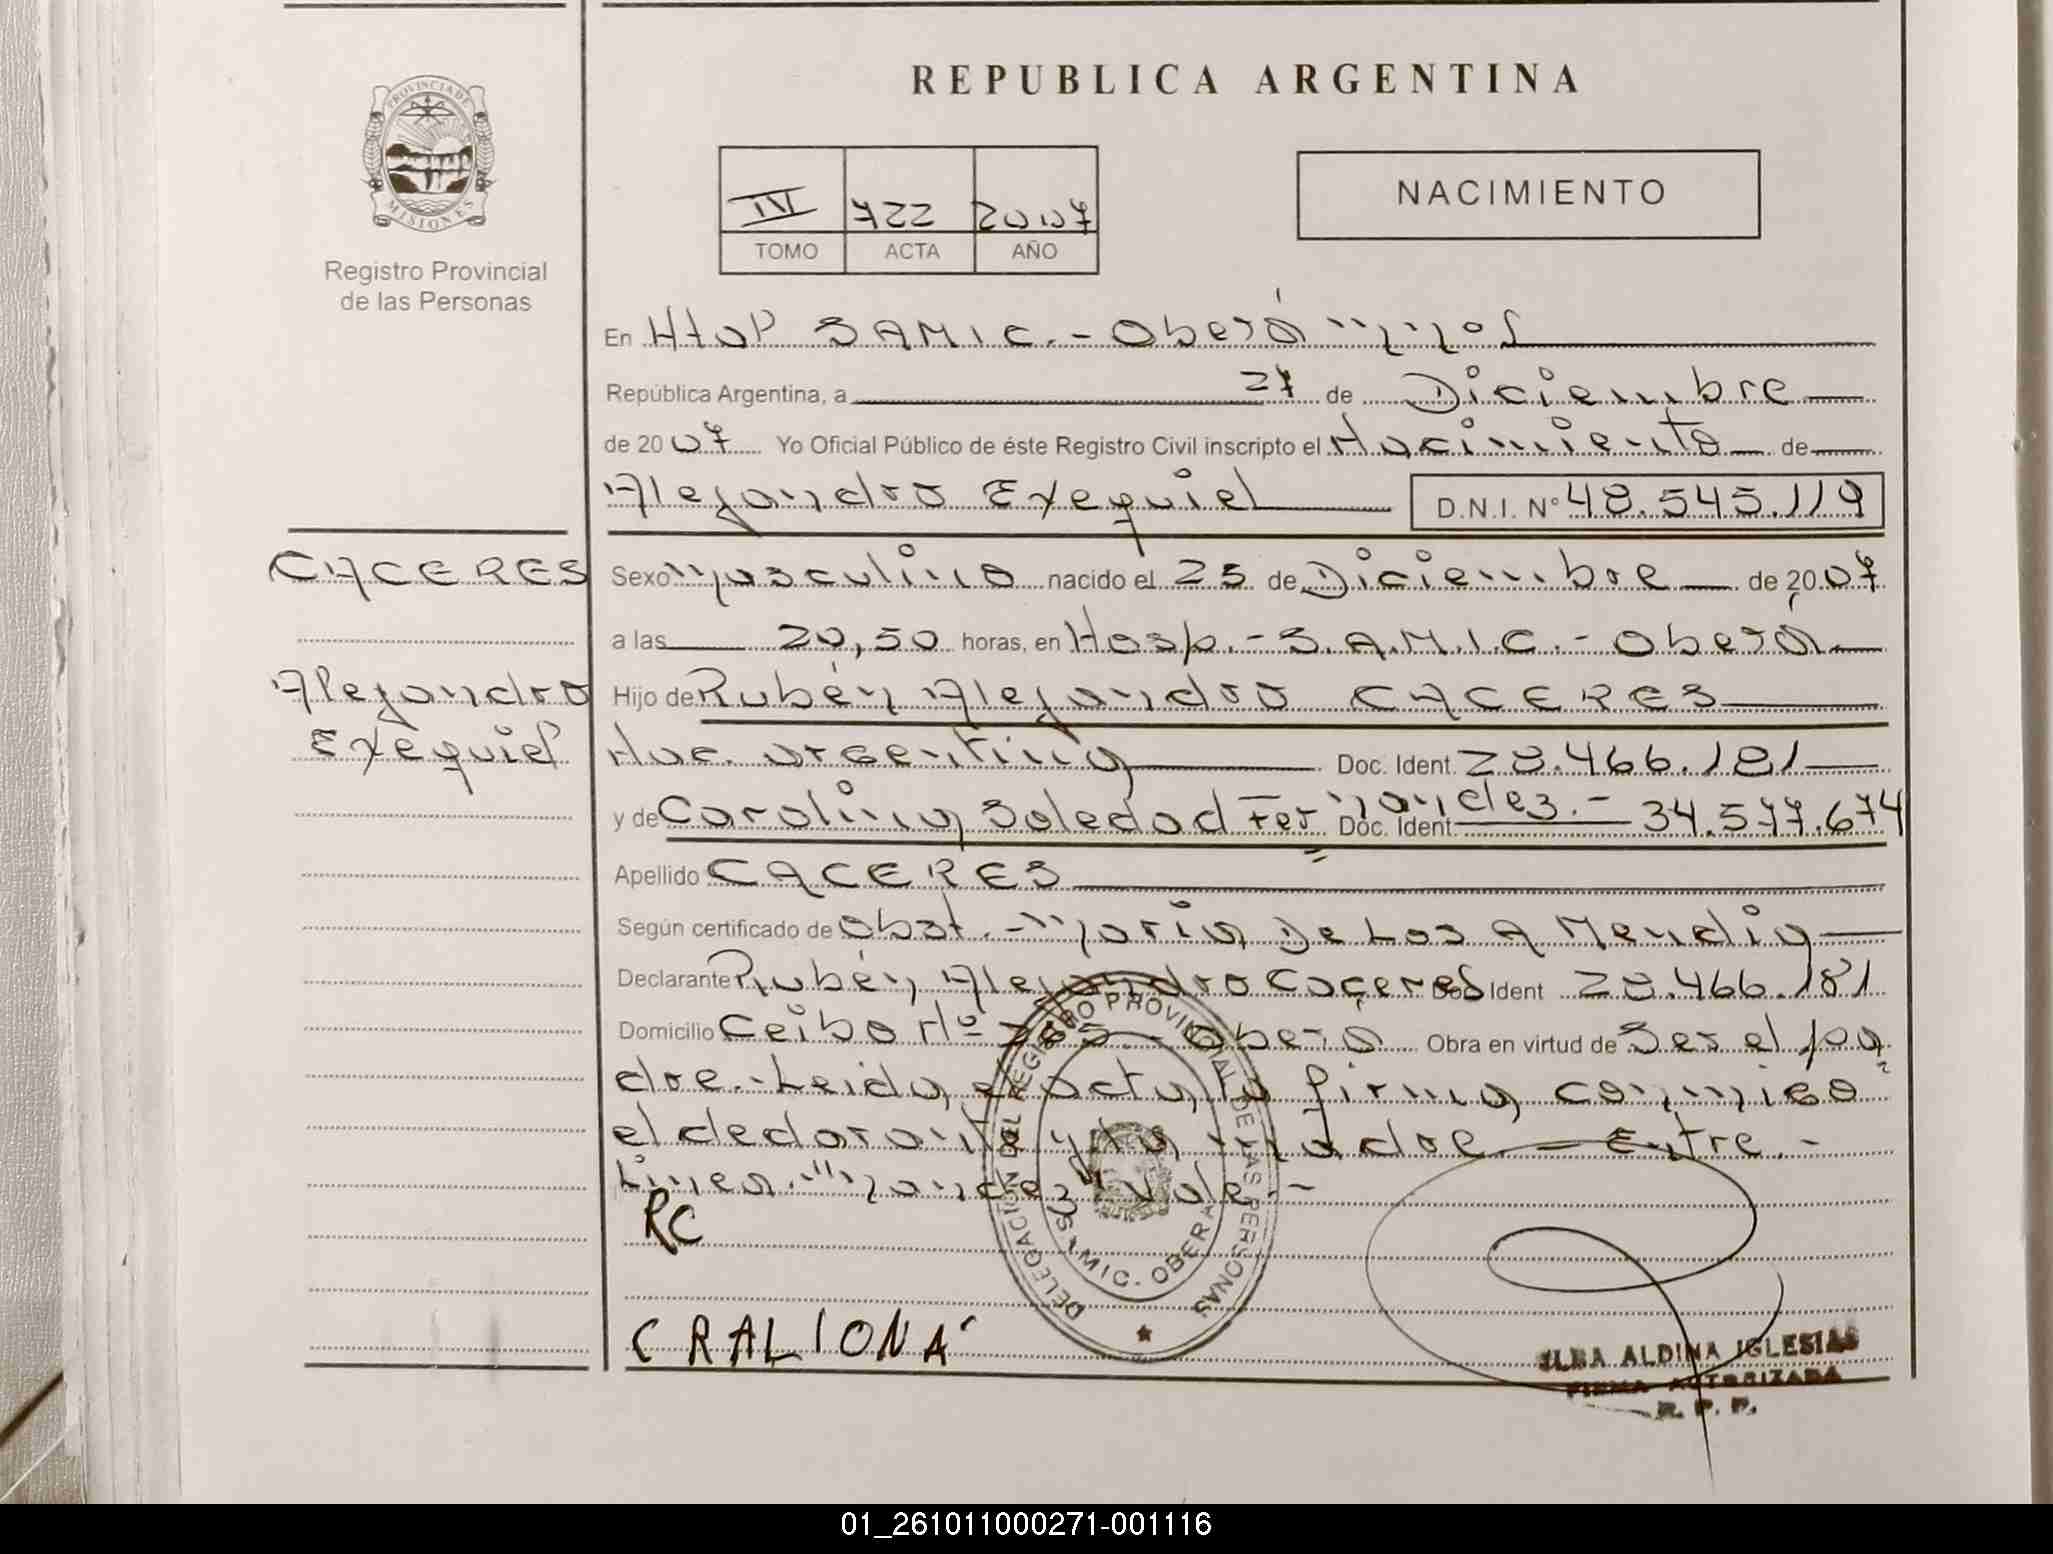 REPUBLICA ARGENTINA
PROVINCIA DE MISIONES
Registro Provincial
de las Personas
IV 722 2007
TOMO ACTA AÑO
NACIMIENTO
En Hosp SAMIC.- Oberá Mnes
República Argentina, a 27 de Diciembre
de 2007 Yo Oficial Público de éste Registro Civil inscripto el Nacimiento de
Alejandro Exequiel D.N.I. Nº 48.545.119
CACERES
Alejandro
Exequiel
Sexo Masculino nacido el 25 de Diciembre de 2007
a las 20,50 horas, en Hosp.- S.A.M.I.C.- Oberá
Hijo de Rubén Alejandro CACERES
Nac. argentina Doc. Ident. 28.466.181
y de Carolina Soledad Fernandez.- Doc. Ident. 34.577.674
Apellido CACERES
Según certificado de Obst.- Maria De Los A Mendia
Declarante Rubén Alejandro Caceres Doc Ident 28.466.181
Domicilio Ceibo Nº 385.- Oberá Obra en virtud de Ser el pa
dre.- Leida el acta, la firma conmigo
el declarante y la madre.- Entre.-
Linea "nandez" vale.-
RC
CRALIONA
DELEGACIÓN DEL REGISTRO PROVINCIAL DE LAS PERSONAS
SAMIC. OBERA
ILBA ALDINA IGLESIAS
FIRMA AUTORIZADA
R. P. P.
01_261011000271-001116